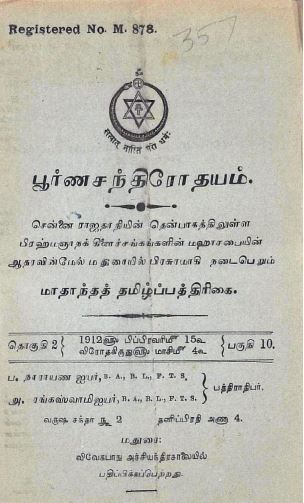 Registered No. M. 878.
357
सत्यात् नास्ति परो धर्मः
பூர்ணசந்திரோதயம்.
சென்னை ராஜதானியின் தென்பாகத்திலுள்ள
பிரஹ்மஞானக் கிளைச்சங்கங்களின் மஹாசபையின்
ஆதரவின்மேல் மதுரையில் பிரசுரமாகி நடைபெறும்
மாதாந்தத் தமிழ்ப்பத்திரிகை.
தொகுதி 2 { 1912௵ பிப்பிரவரிமீ 15௳ } பகுதி 10.
விரோதகிருது௵ மாசிமீ 4௳
ப. நாராயண ஐயர், B. A., B. L., F. T. S.
அ. ரங்கஸ்வாமிஐயர், B. A., B. L., F. T. S. } பத்திராதிபர்.
வருஷ சந்தா ரூ 2 தனிப்பிரதி அணா 4.
மதுரை:
விவேகபாநு அச்சியந்திரசாலையில்
பதிப்பிக்கப்பெற்றது.